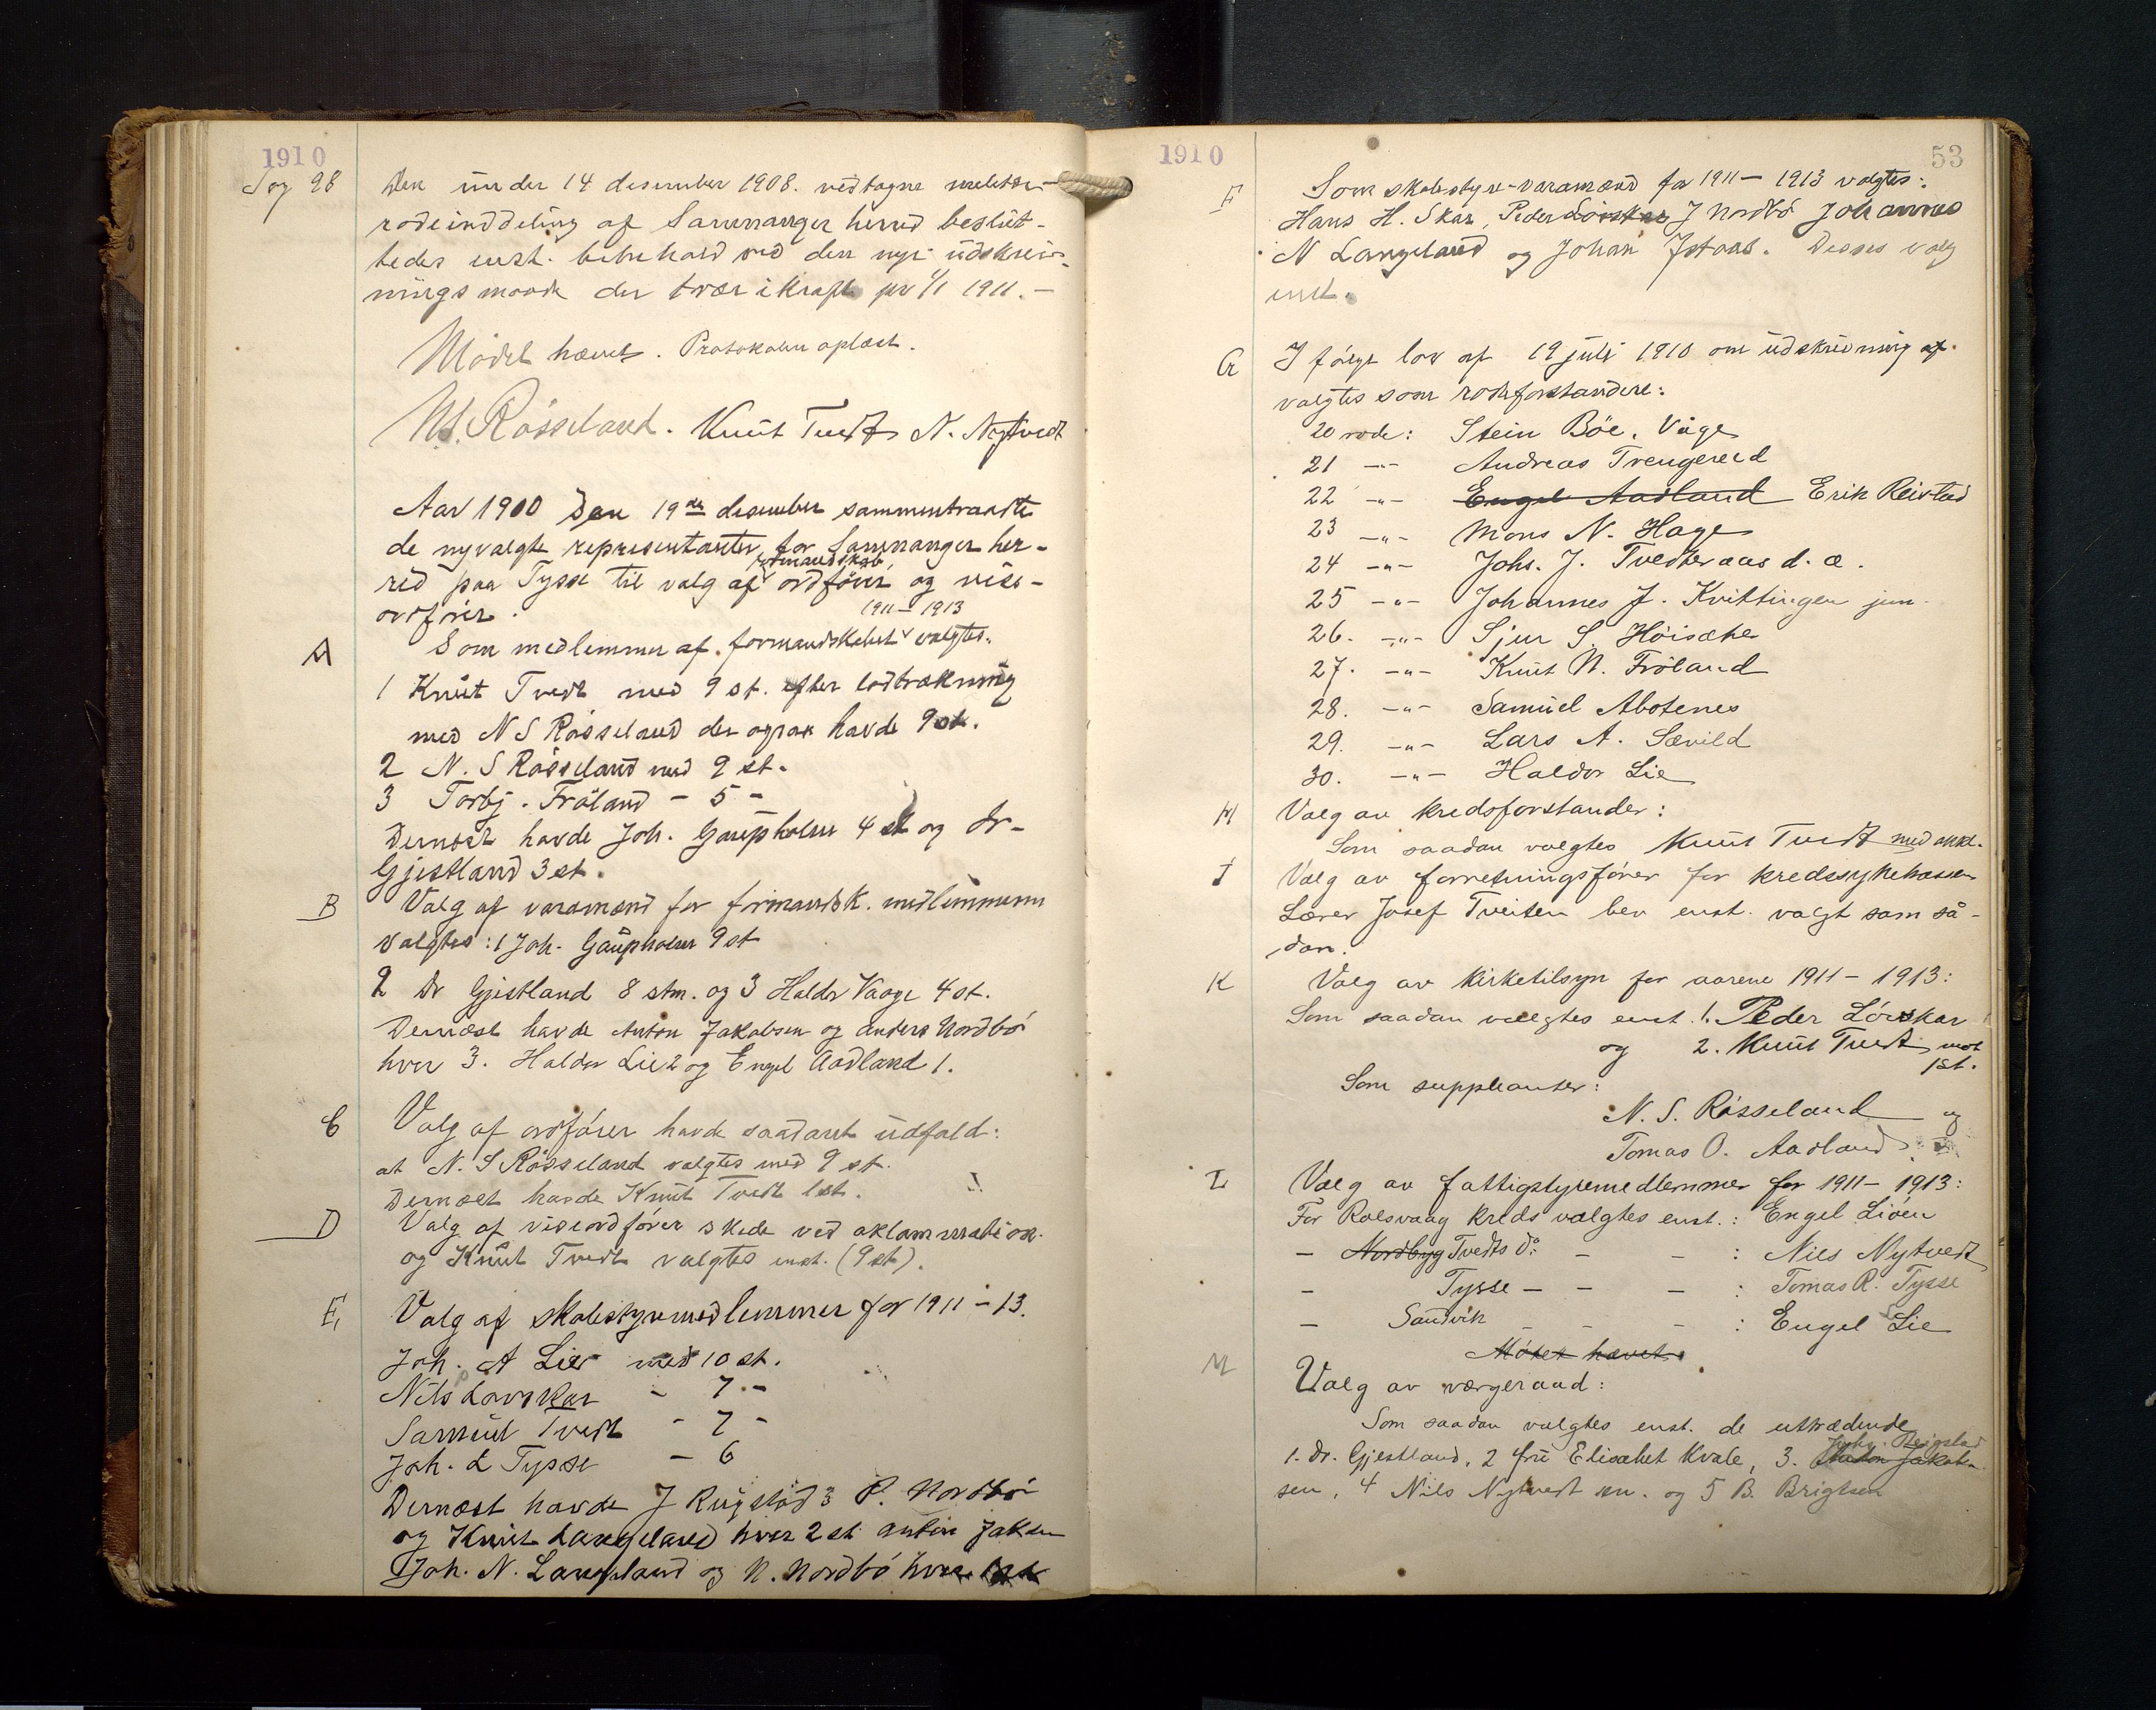 1910
Sag 98
Den under 14 desember 1908. vedtagne
rodeinddeling af Samnanger herred beslut-
tedes enst. bibehold ved den nye udskriv-
nings der trær i kraft pr 1/1 1911. -
Mødet hævet. Protokolen oplæst.
N.S. Røsseland. Knut Tvedt N. Nytvedt
Aar 1910 Den 19de desember sammentraadte
de nyvalgte representanter for Samnanger her-
red paa Tysse til valg af formandskab, ordfører og vise-
ordfører.
A
Som medlemmer af formandskabet 1911-1913 valgtes:
1 Knut Tvedt med 9 st. efter lodtrækning
med N S Røsseland der ogsaa havde 9 st.
2 N. S Røsseland med 9 st.
3 Torbj. Frøland - 5 -
Dernæst havde Joh. Gaupholm 4 st og Dr-
Gjestland 3 st.
B
Valg af varamænd for formandsk. medlemmerne
valgtes: 1 Joh. Gaupholm 9 st
2 Dr Gjestland 8 stm. og 3 Haldr Vaage 4 st.
Dernæst havde Anton Jakobsen og Anders Nordbø
hver 3. Haldor Lie 2 og Engel Aadland 1.
C
Valg af ordfører havde saadant udfald:
at N. S Røsseland valgtes med 9 st.
Dernæst havde Knut Tvedt 1 st.
D
Valg af viseordfører skede ved aklammation
og Knut Tvedt valgtes enst. (9 st).
E,
Valg af skolestyremedlemmer for 1911 - 13.
Joh. A Lie med 10 st.
Nils Løvskar - 7 -
Samuel Tvedt - 7 -
Joh. L Tysse - 6
Dernæst havde J Reigstad 3 P. Nordbø
og Knut Langeland hver 2 st Anton Jaksen
Joh. N. Langeland og N. Nordbø hver 1 st
1910
53
F
Som skolestyre-varamænd for 1911 - 1913 valgtes:
Hans H. Skar, Peder Løvskar J Nordbø Johannes
N Langeland og Johan Jstaas. Desses valg
enst.
G
I følge lov af 19 juli 1910 om udskrivning af.
valgtes som rodeforstandere:
20 rode: Stein Böe, Våge
21 -"- Andreas Trengereid
22 -"- Engel Aadland Erik Reistad
23 -"- Mons N. Hage
24 -"- Johs. J. Tvedteraas d. æ.
25 -"- Johannes J. Kvittingen jun.
26. -"- Sjur S. Høisæter
27. -"- Knut N. Frøland
28. -"- Samuel Aböternes
29. -"- Lars A. Sævild
30. -"- Haldor Lie
H
Valg av kredsforstander:
Som saadan valgtes Knut Tvedt med akkl.
I
Valg av forretningsfører for kredssykekassen
Lærer Josef Tveiten blev enst. valgt som så-
dan.
K
Valg av kirketilsyn for aarene 1911 - 1913:
Som saadan valgtes enst. 1. Peder Løvskar
og 2. Knut Tvedt mot
1 st.
Som suppleanter:
N. S. Røsseland og
Tomas O. Aadland
L
Valg av fattigstyremedlemmer for 1911 - 1913:
For Rolsvaag kreds valgtes enst.: Engel Lióen
- Nordbyg Tvedts do - - : Nils Nytvedt
- Tysse - - - : Tomas R. Tysse
- Sandvik - - - : Engel Lie
Møtet hævet.
M
Valg av vergeraad:
Som saadan valgtes enst. de uttrædende
1. Dr. Gjestland, 2 fru Elisabet Kvale, 3. Anton Jakob- Johs. Reigstad
sen, 4 Nils Nytvedt sen. og 5 B. Brigtsen